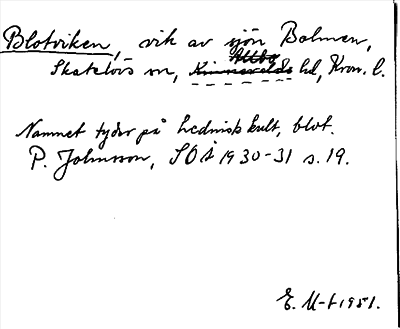 Blotviken, vik av sjön Bolmen,
Allbo
Skatelövs sn, Kinnevalds hd, Kron. l.
Namnet tyder på hednisk kult, blot.
P. Johnsson, SOÅ 1930-31 s. 19.
E. M-t 1951.